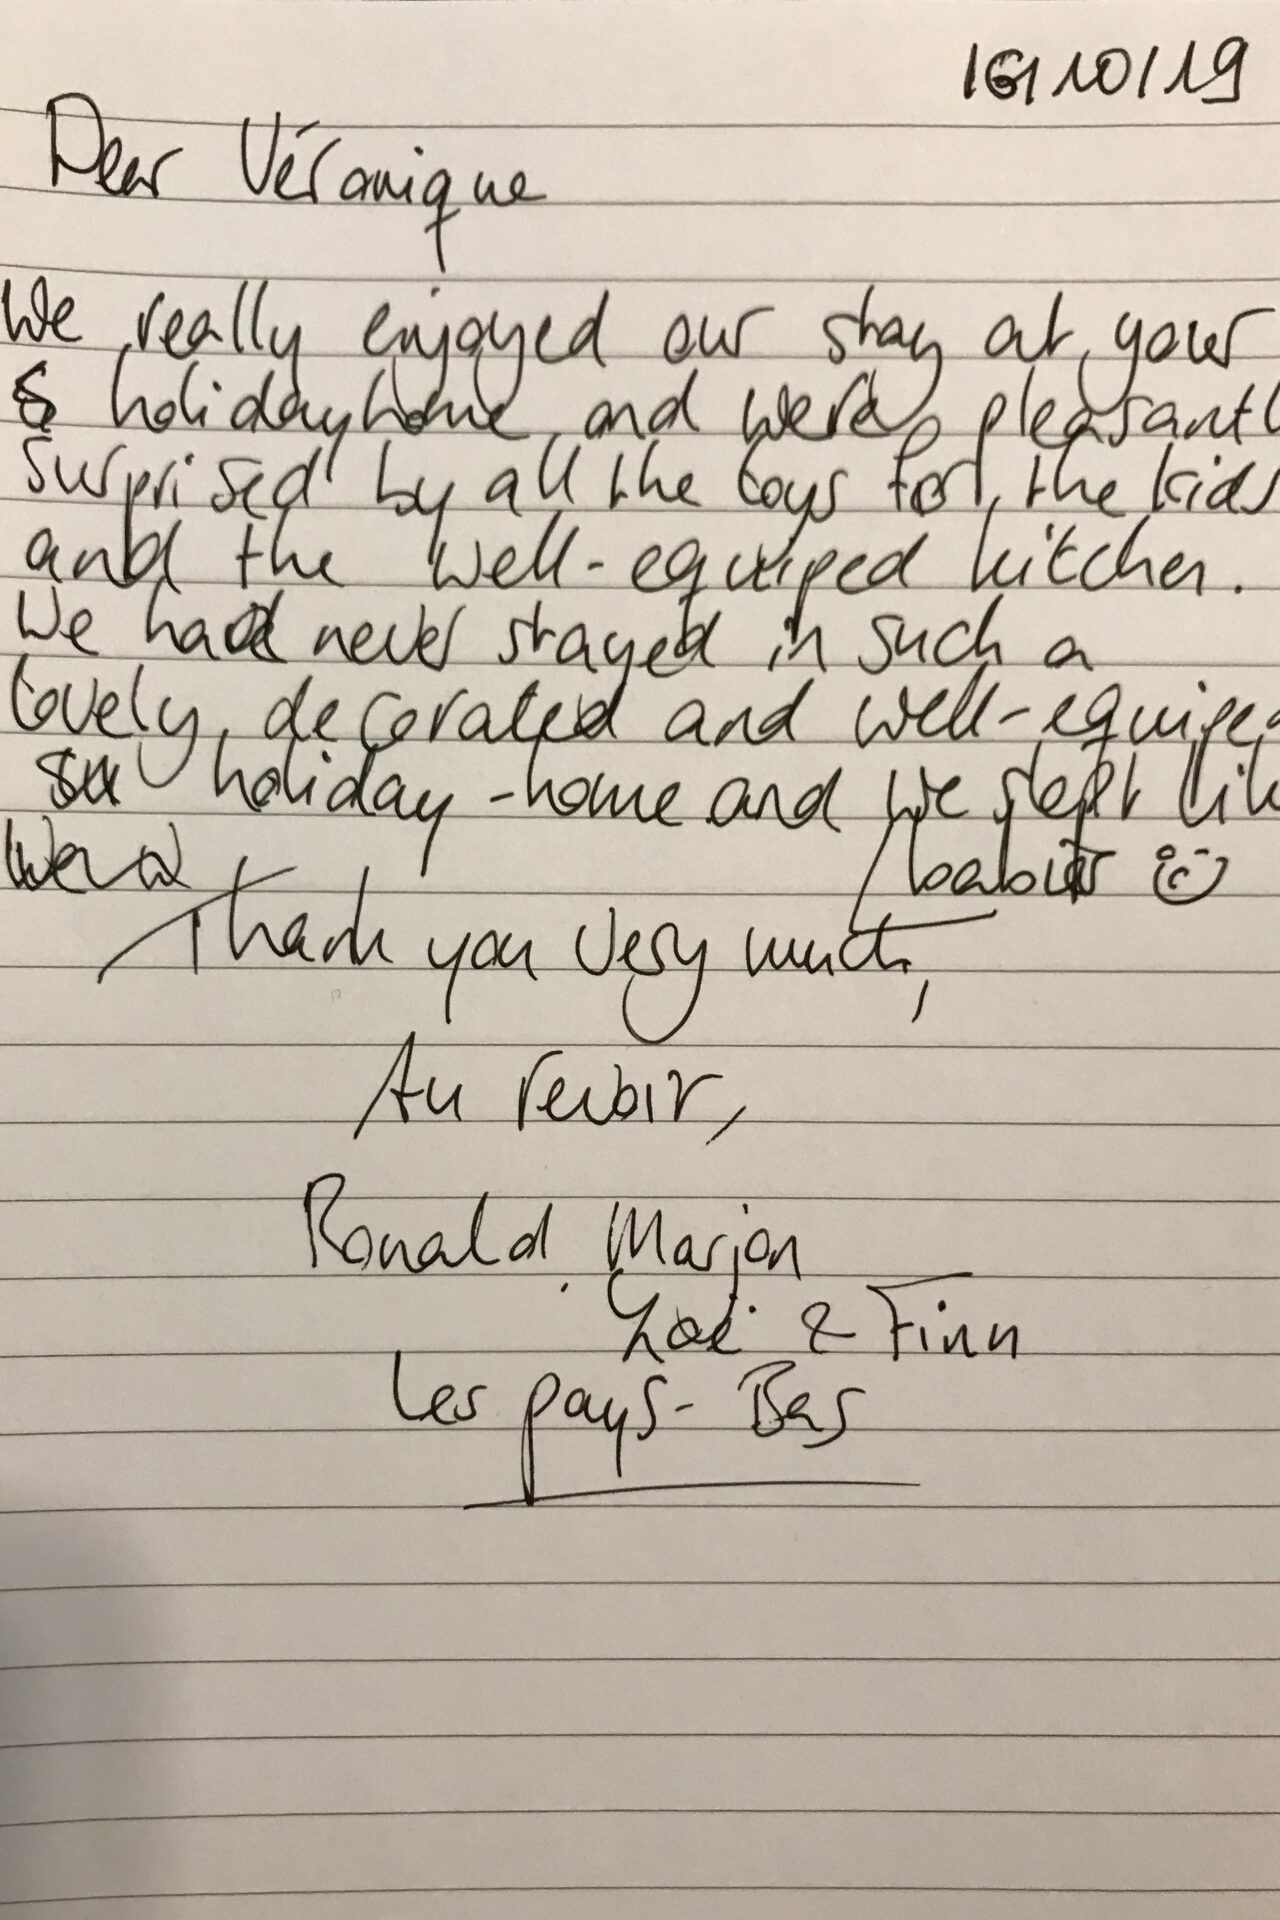 16/10/19
Dear Véronique
We really enjoyed our stay at your
holidayhome, and were pleasantl
surprised by all the toys for the kids
and the well-equiped kitchen.
We had never stayed in such a
lovely, decorated and well-equiped
holiday-home and we slept lik
babies
Thank you very much,
Au revoir,
Ronald, Marjon
Zoë & Finn
Les pays-Bas